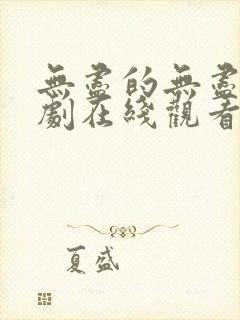 無盡的無盡
劇在綫觀看
夏盛